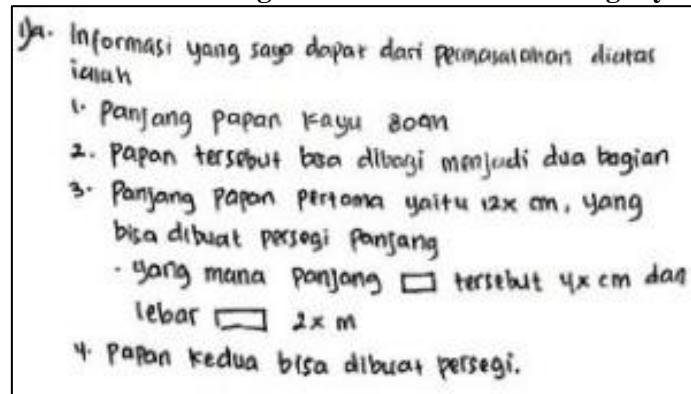 1)a. Informasi yang saya dapat dari permasalahan diatas
ialah
1. Panjang papan kayu 80cm
2. Papan tersebut bisa dibagi menjadi dua bagian
3. Panjang papan pertama yaitu 12x cm, yang
bisa dibuat persegi panjang
- yang mana panjang ▭ tersebut 4x cm dan
lebar ▭ 2x m
4. Papan kedua bisa dibuat persegi.